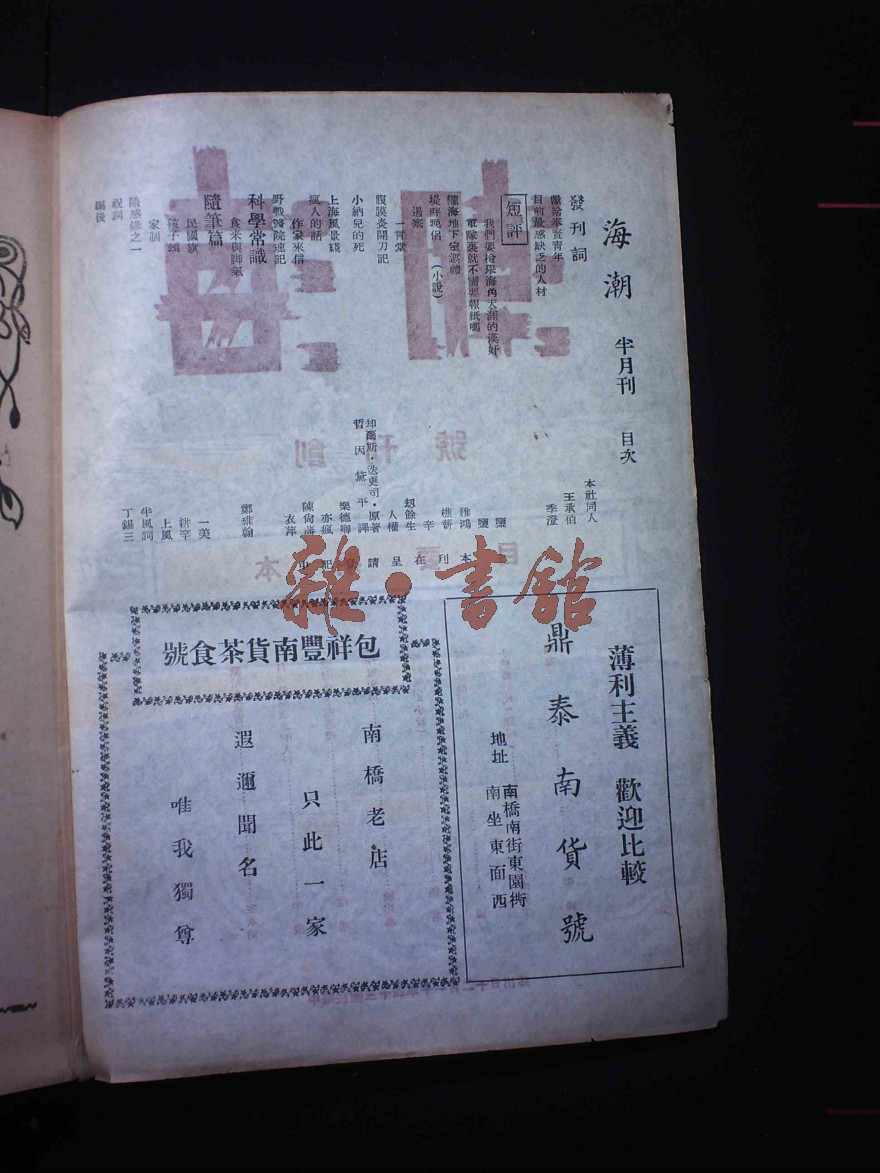 海潮 半月刊 目次
發刊詞
獻給奉賢青年
目前最感缺乏的人材
短評
我們要檢舉海角天涯的漢奸
軍隊裏就不需要報紙嗎
堤畔晚侶 (小說)
遇寒
一言堂
腹膜炎開刀記
小納兒的死
上海風景綫
瘋人的話
作家來信
野戰醫院速記
科學常識
食米與脚氣
隨筆篇
民國旗
孩子頌
家制
隨感錄之一
祝詞
編後
本社同人
王承伯
季澄
鹽
鹽
稚鴻
樵薪
辛
刼餘生
人權
却爾斯·迭更司·原著
哲因黛平譯
樂德卿
亦瘋
陳尙藩
衣萍
鄭維翰
一美
上風
耕辛
半風詞
丁錫三
本刊在呈請
雜·書館
薄利主義 歡迎比較
鼎泰南貨號
地址 南橋南街東園衖
南坐東面西
包祥豐南貨茶食號
南橋老店
只此一家
遐邇聞名
唯我獨尊
創刊號